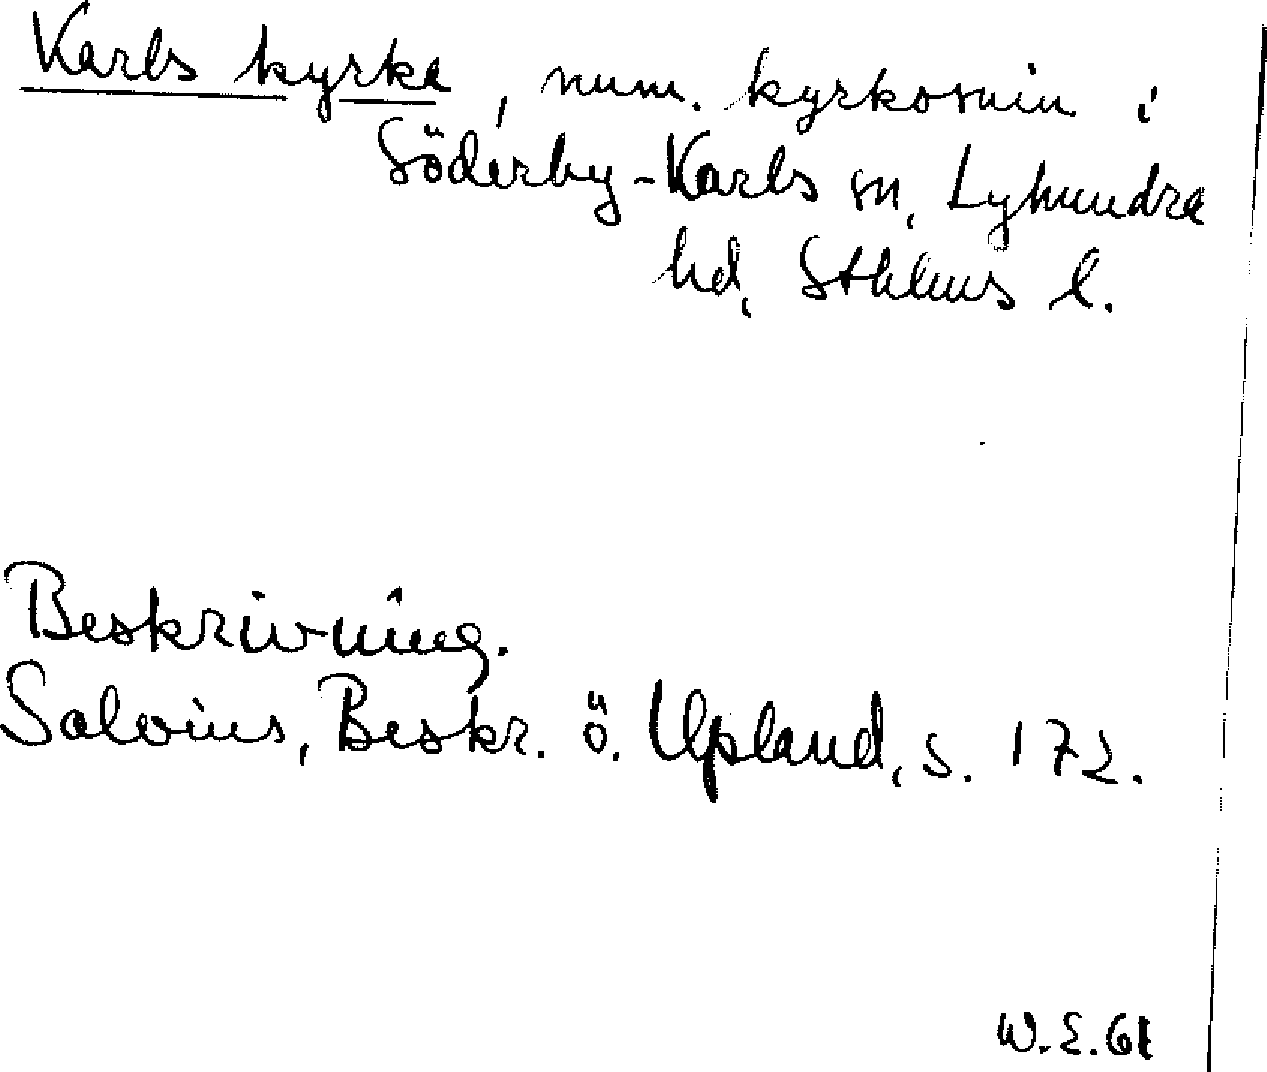 Karls kyrka, num. kyrkoruin i
Söderby-Karls sn, Lyhundra
hd, Sthlms l.
Beskrivning.
Salvius, Beskr. ö. Upland, s. 172.
W.E.61